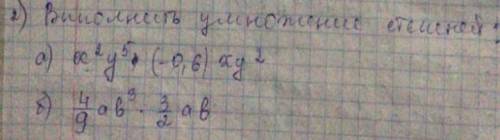 2) Выполнить умножение степеней:
а) x²y⁵ · (-0,6) xy²
б) 4/9 ab³ · 3/2 ab